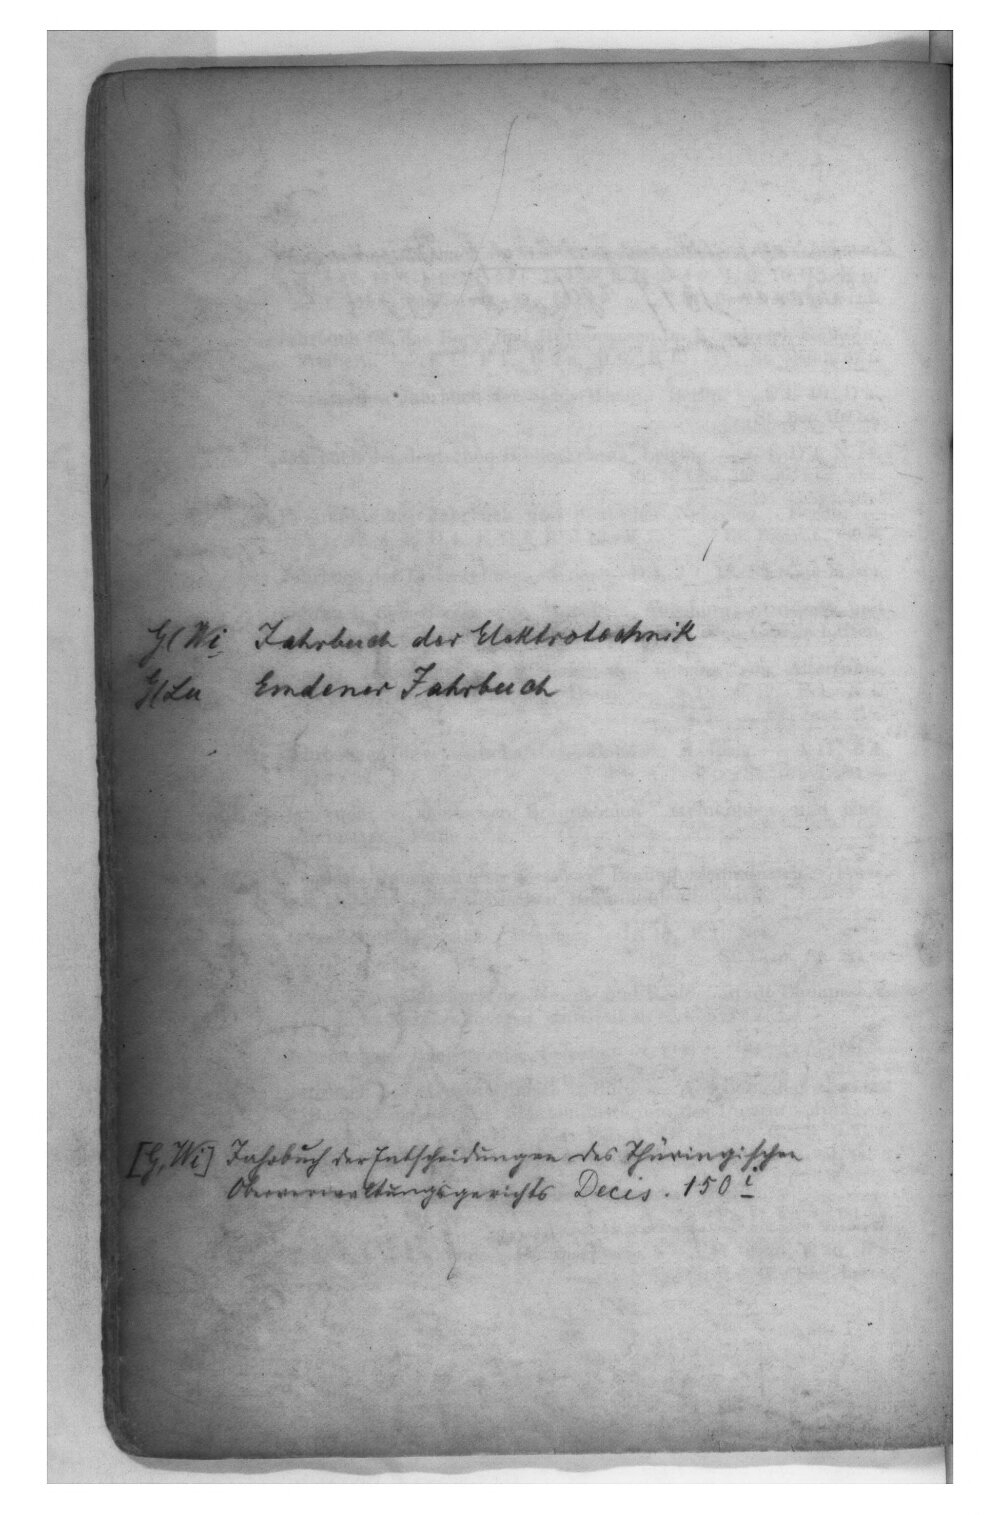 G/Wi Jahrbuch der Elektrotechnik
G/Lu Emdener Jahrbuch
[G, Wi] Jahrbuch der Entscheidungen des Thüringischen
Oberverwaltungsgerichts Decis. 150 i